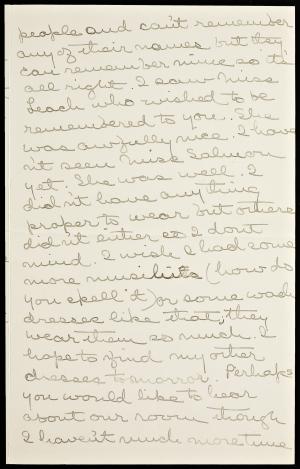 people and can't remember
any of their names but they
can remember mine so it's
all right. I saw Miss
Leach who wished to be
remembered to you. She
was awfully nice. I have
n't seen Miss Salmon
yet. She was well. I
did n't have any thing
proper to wear but others
did n't either so I don't
mind. I wish I had some
more muslins (how do
you spell it) or some wash
dresses like that, they
wear them so much. I
hope to find my other
dresses to morrow. Perhaps
you would like to hear
about our room though
I haven't much more time